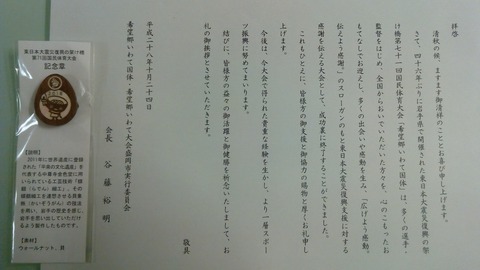 拝啓
清秋の候、ますます御清祥のこととお喜び申し上げます。
さて、四十六年ぶりに岩手県で開催された東日本大震災復興の架
け橋第七十一回国民体育大会「希望郷いわて国体」は、多くの選手・
監督をはじめ、全国からおいでいただいた方々を、心のこもったお
もてなしでお迎えし、多くの出会いや感動を生み、「広げよう感動。
伝えよう感謝。」のスローガンのもと東日本大震災復興支援に対する
感謝を伝える大会として、成功裏に終了することができました。
これもひとえに、皆様方の御支援と御協力の賜物と厚くお礼申し
上げます。
今後は、今大会で得られた貴重な経験を生かし、より一層スポー
ツ振興に努めてまいります。
結びに、皆様方の益々の御活躍と御健勝を祈念いたしまして、お
礼の御挨拶とさせていただきます。
敬具
平成二十八年十月二十四日
希望郷いわて国体・希望郷いわて大会盛岡市実行委員会
会長 谷藤裕明
東日本大震災復興の架け橋
第71回国民体育大会
記念章
【説明】
2011年に世界遺産に登録
された「平泉の文化遺産」を
代表する中尊寺金色堂に用
いられている工芸技術「螺
鈿(らでん)細工」。その
螺鈿細工を連想させる貝象
嵌(かいぞうがん)の技法
を用い、岩手の歴史を感じ、
岩手を思い出していただけ
るよう製作したものです。
【素材】
ウォールナット、貝